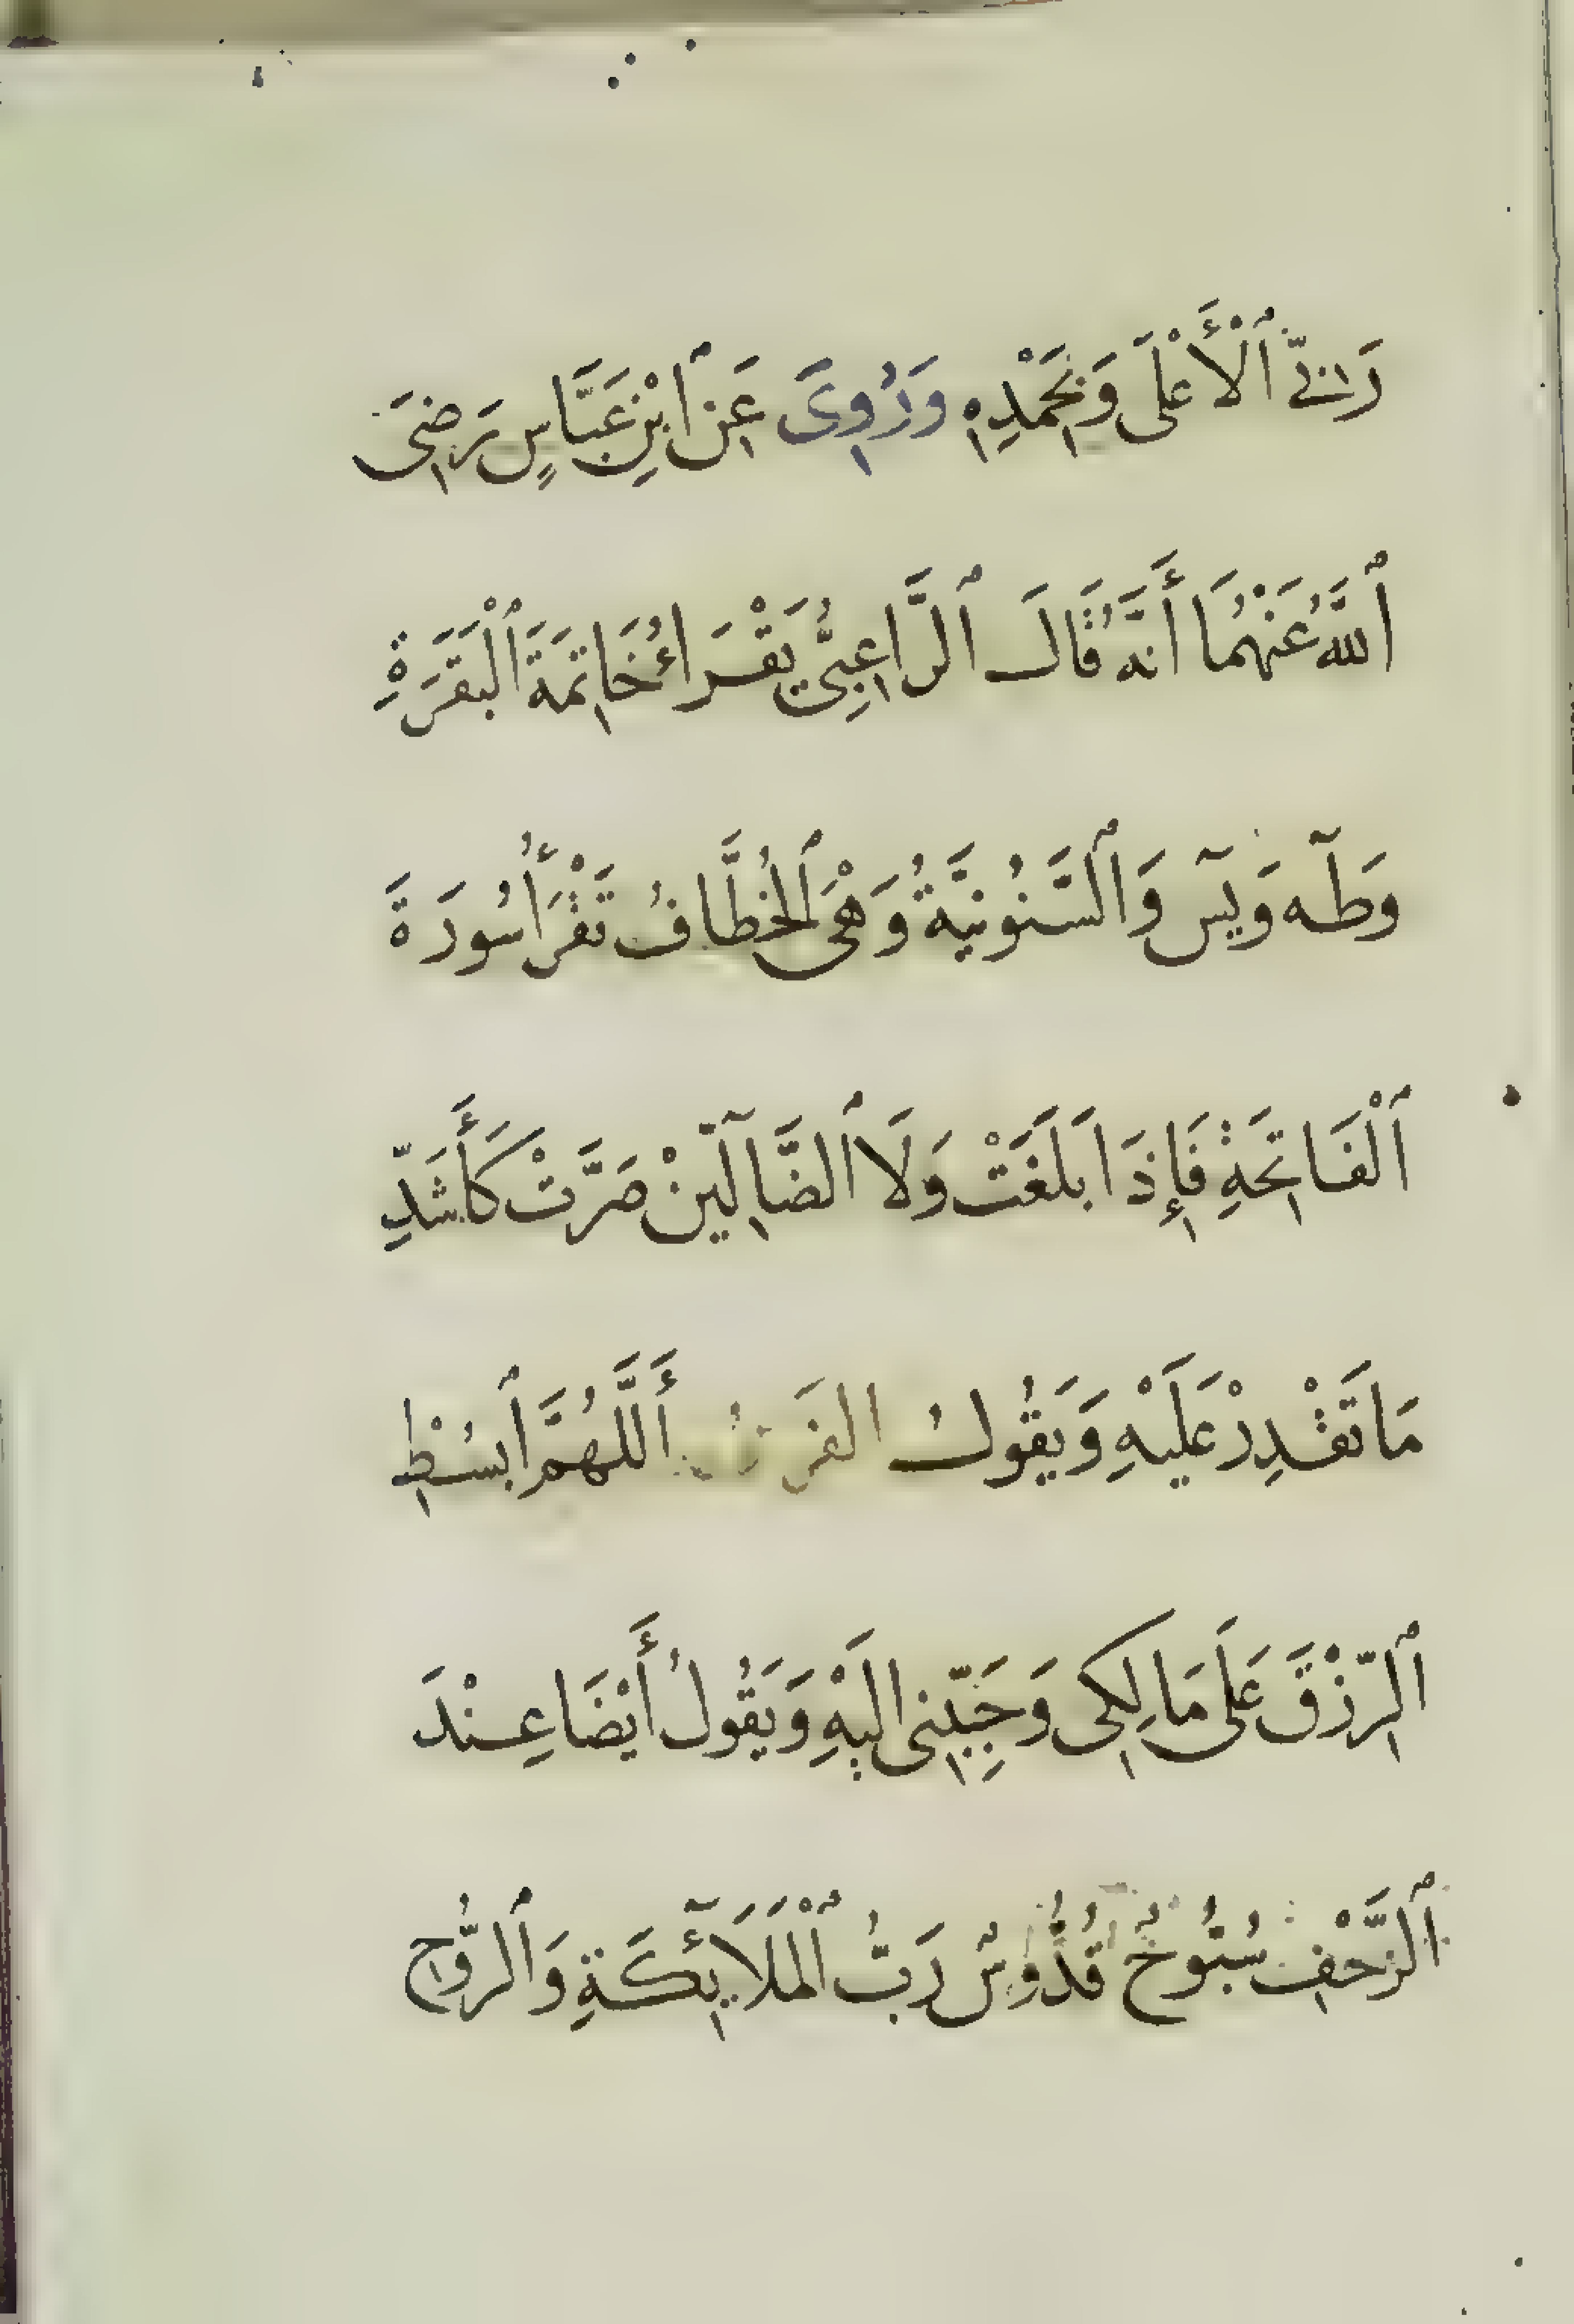 رَبِّىَ ٱلْأَعْلَى وَبِحَمْدِهِ وَرُوِىَ عَنِ ٱبْنِ عَبَّاسٍ رَضِىَ
ٱللَّهُ عَنْهُمَا أَنَّهُ قَالَ ٱلرَّاعِبِىُّ يَقْرَاءُ خَاتِمَةَ ٱلْبَقَرَةِ
وَطَٓهَ وَيَٓس وَٱلسَّنُونِيَّةُ وَهْىَ ٱلْخُطَّافُ تَقْرَأُ سُورَةَ
ٱلْفَاتِحَةِ فَإِذَا بَلَغَتْ وَلَا ٱلضَّآلِّينْ صَرَّتْ كَأَشَدِّ
مَا تَقْدِرْ عَلَيْهِ وَيَقُولُ أَللَّهُمَّ ٱبْسُطِ
ٱلرِّزْقَ عَلَى مَالِكِى وَحَبِّبْنِى إلَيْهِ وَيَقُولُ أَيْضَا عِنْدَ
ٱلزَّحْفِ سُبُّوحٌ قُدُّوسٌ رَبُّ ٱلْمَلَآئِكَةِ وَٱلرُّوحِ